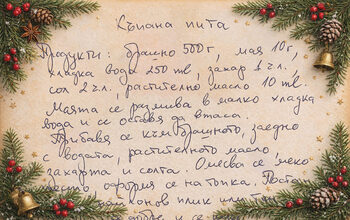 Къпана пита
Продукти: брашно 500 г, мая 10 г,
хладка вода 250 мл, захар 1 ч.л.
сол 2 ч.л. растително масло 10 мл.
Маята се размива в малко хладка
вода и се оставя да втаса.
Прибавя се към брашното, заедно
с водата, растителното масло
захарта и солта. Омесва се меко
тесто, оформя се на топка. Поставя
плик или
и се